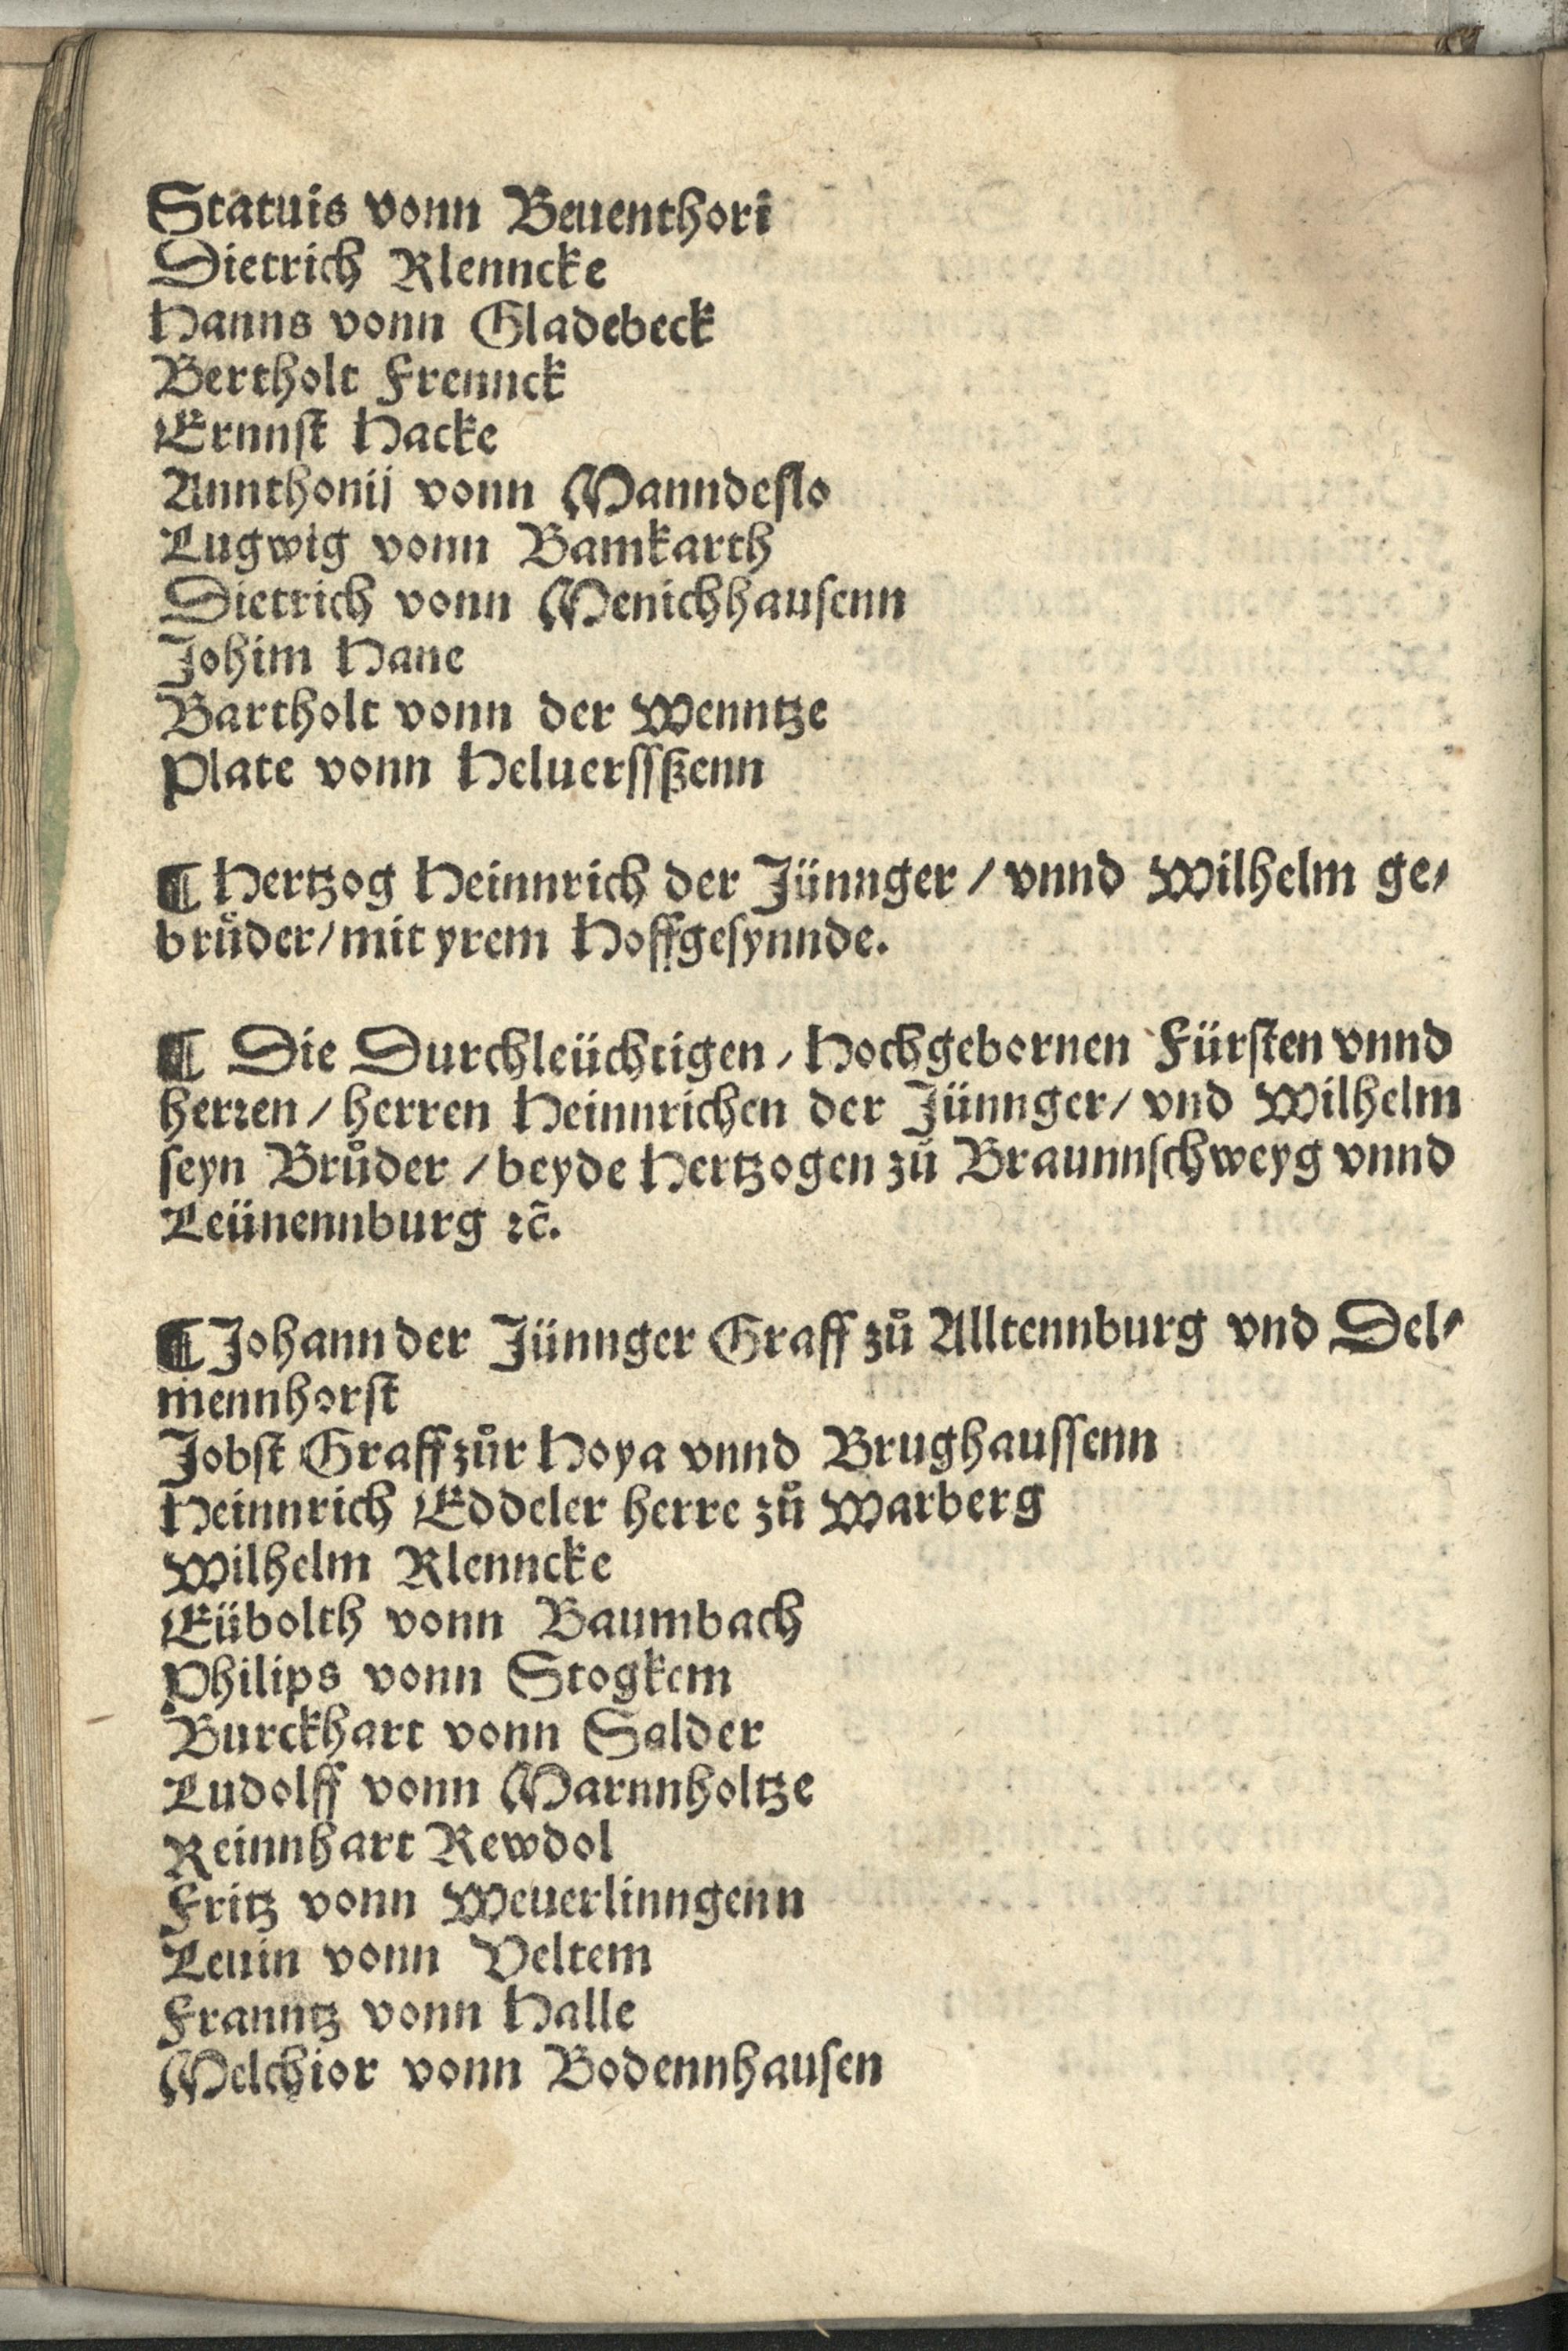 Statuis vonn Beuenthorî
Dietrich Klenncke
Hanns vonn Gladebeck
Bertholt Frennck
Ernnſt Hacke
Annthonij vonn Manndeſlo
Lugwig vonn Bamkarth
Dietrich vonn Menichhauſenn
Johim Hane
Bartholt vonn der Wenntze
Plate vonn Heluerſſßenn
¶ Hertzog Heinnrich der Jünnger / vnnd Wilhelm ge⸗
brůder / mit yrem Hoffgeſynnde.
¶ Die Durchleüchtigen / Hochgebornen Fürſten vnnd
herꝛen / herren Heinnrichen der Jünnger / vnd Wilhelm
ſeyn Brůder / beyde Hertzogen zů Braunnſchweyg vnnd
Leünennburg ꝛc̃.
¶ Johann der Jünnger Graff zů Alltennburg vnd Del⸗
mennhorſt
Jobſt Graff zůr Hoya vnnd Brughauſſenn
Heinnrich Eddeler herre zů Warberg
Wilhelm Klenncke
Eübolth vonn Baumbach
Philips vonn Stogkem
Burckhart vonn Salder
Ludolff vonn Marnnholtze
Reinnhart Rewdol
Fritz vonn Weuerlinngenn
Leuin vonn Veltem
Franntz vonn Halle
Melchior vonn Bodennhauſen